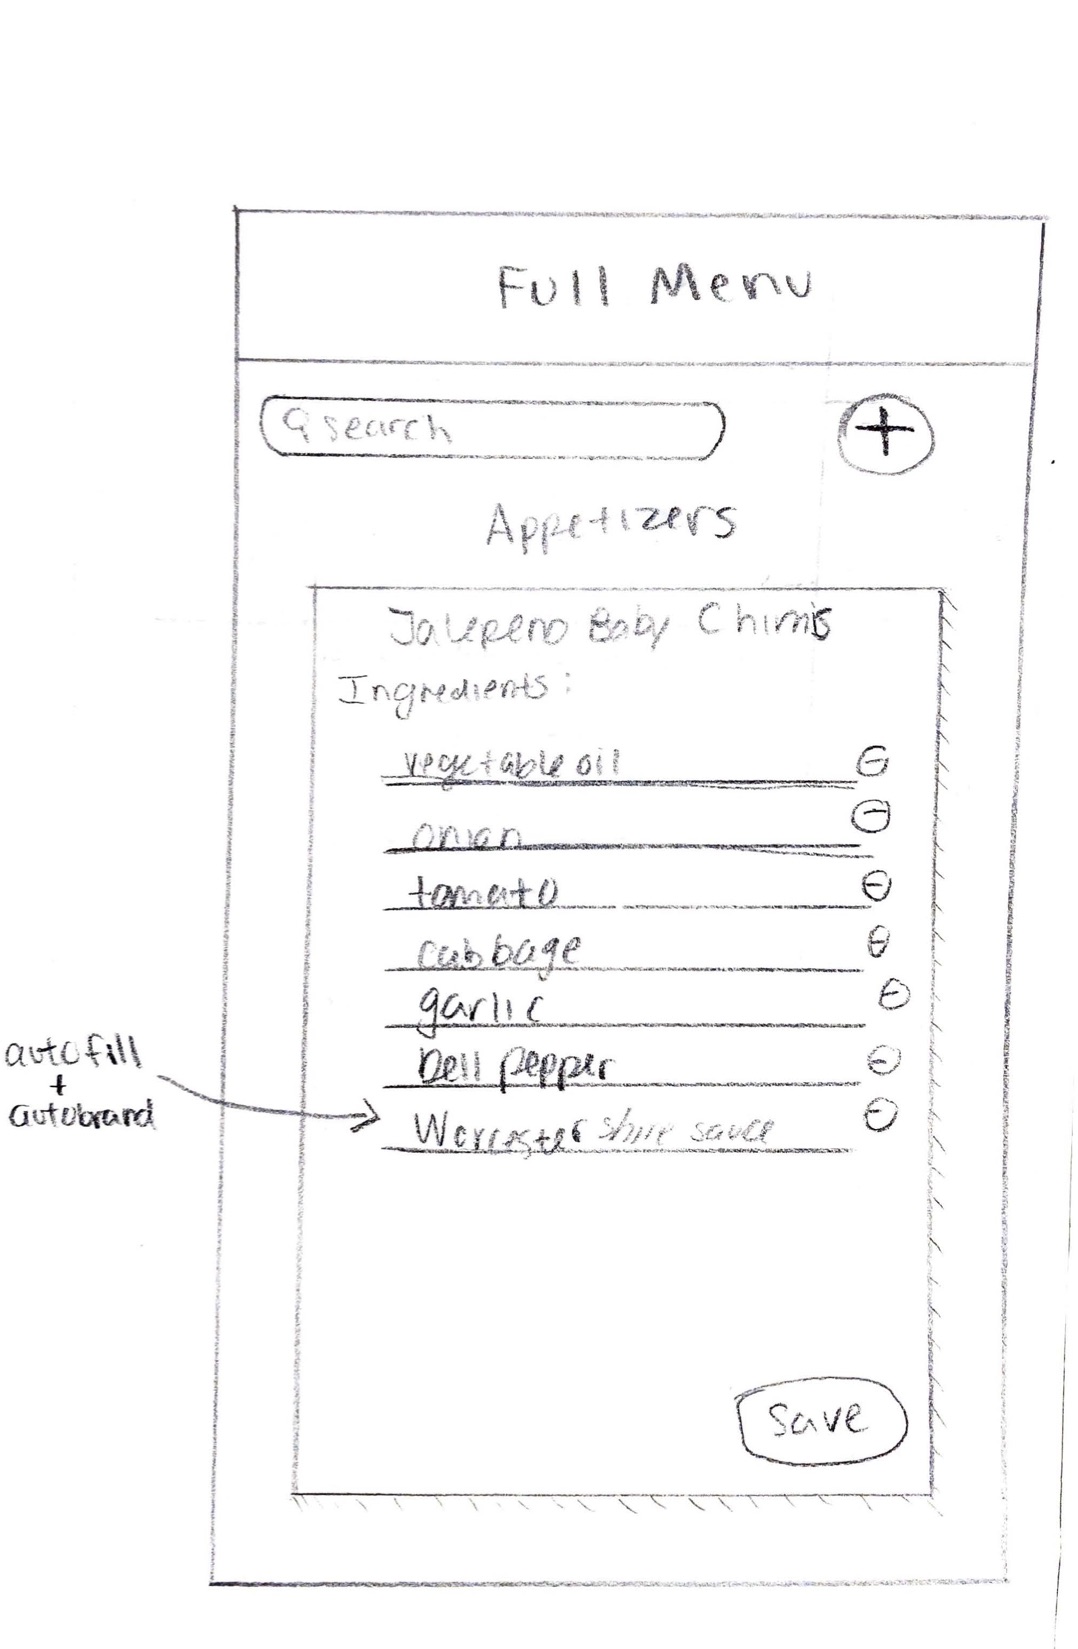 Full Menu
search
Appetizers
Jalepeno Baby Chimis
Ingredients:
vegetable oil
onion
tomato
cabbage
garlic
bell pepper
Worcestershire sauce
autofill
+
autobrand
save